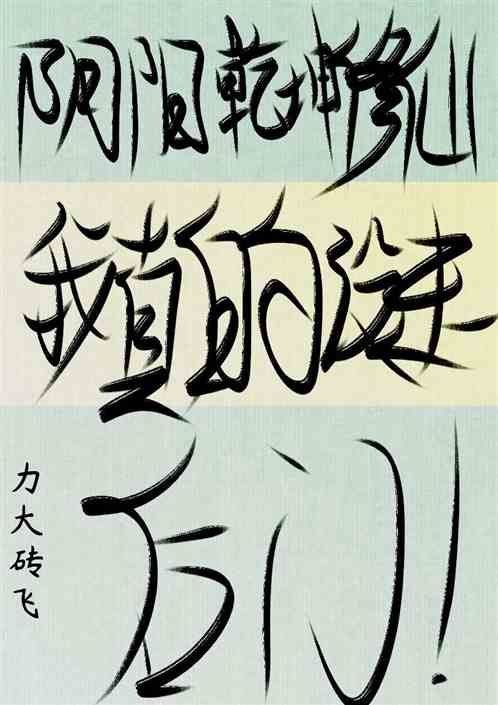 阴阳乾坤修仙
我真的没走
后门!
力大砖飞